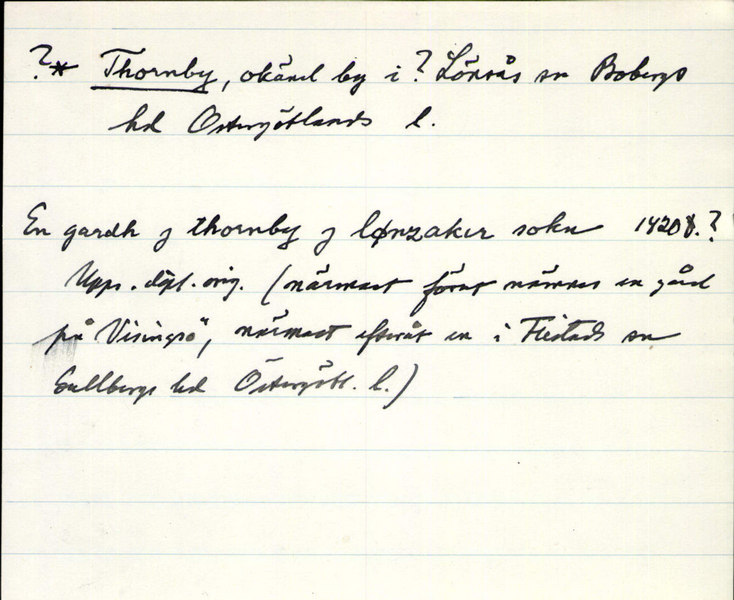 ?* Thornby, okänd by i ? Lönsås sn Bobergs
hd Östergötlands l.
En gardh j thornby j lønzaker sokn 1420 8.?
Upps. dipl. orig. (närmast förut nämnes en gård
på Visingsö, närmast efteråt en i Flistads sn
Gullbergs hd Östergötl. l.)